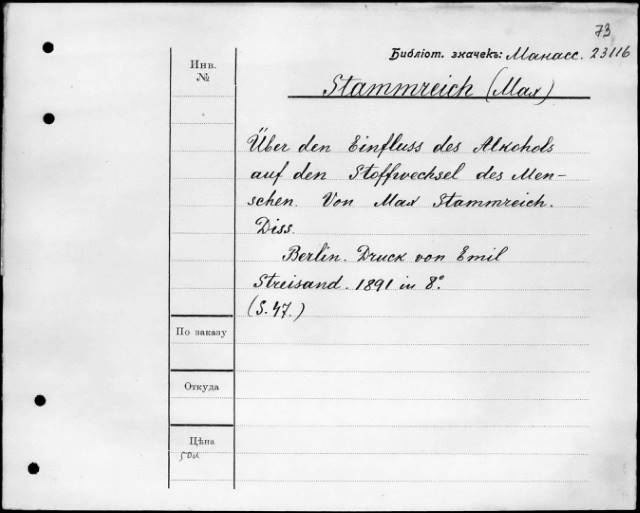 73
Библіот. значекъ: Манасс. 23116
Инв.
№
Stammreich (Max)
Über den Einfluss des Alkohols
auf den Stoffwechsel des Men-
schen. Von Max Stammreich.
Diss.
Berlin. Druck von Emil
Streisand. 1891 in 8°.
(S. 47.)
По заказу
Откуда
Цѣна